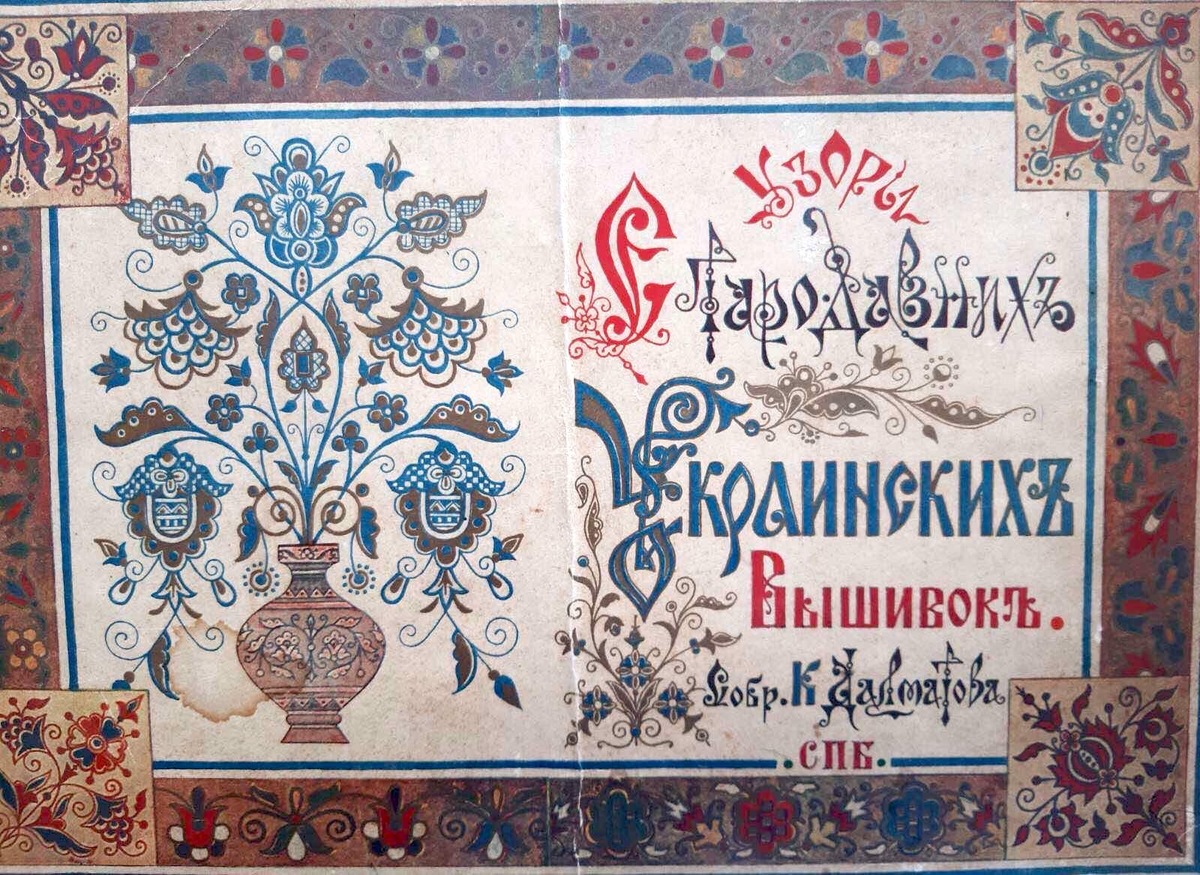 Узоры
Старо-Давнихъ
Украинскихъ
Вышивокъ.
Собр. К Далматова
.СПБ.